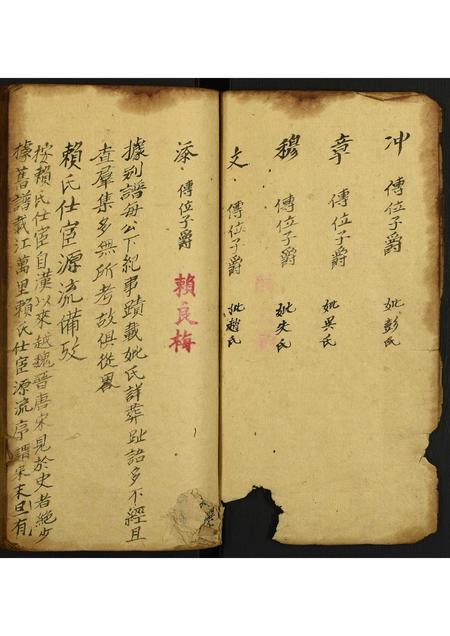 冲 傳位子爵 妣彭氏
章 傳位子爵 妣吳氏
穆 傳位子爵 妣朱氏
文 傳位子爵 妣趙氏
添 傳位子爵 賴良梅
據别譜每公下紀事蹟載妣氏詳葬趾語多不經且
查羣集多無所考故俱從畧
賴氏仕宦源流備攷
按賴氏仕宦自漢以來越魏晉唐宋見於史者絕少
據舊譜載江萬里賴氏仕宦源流序謂宋末旦有